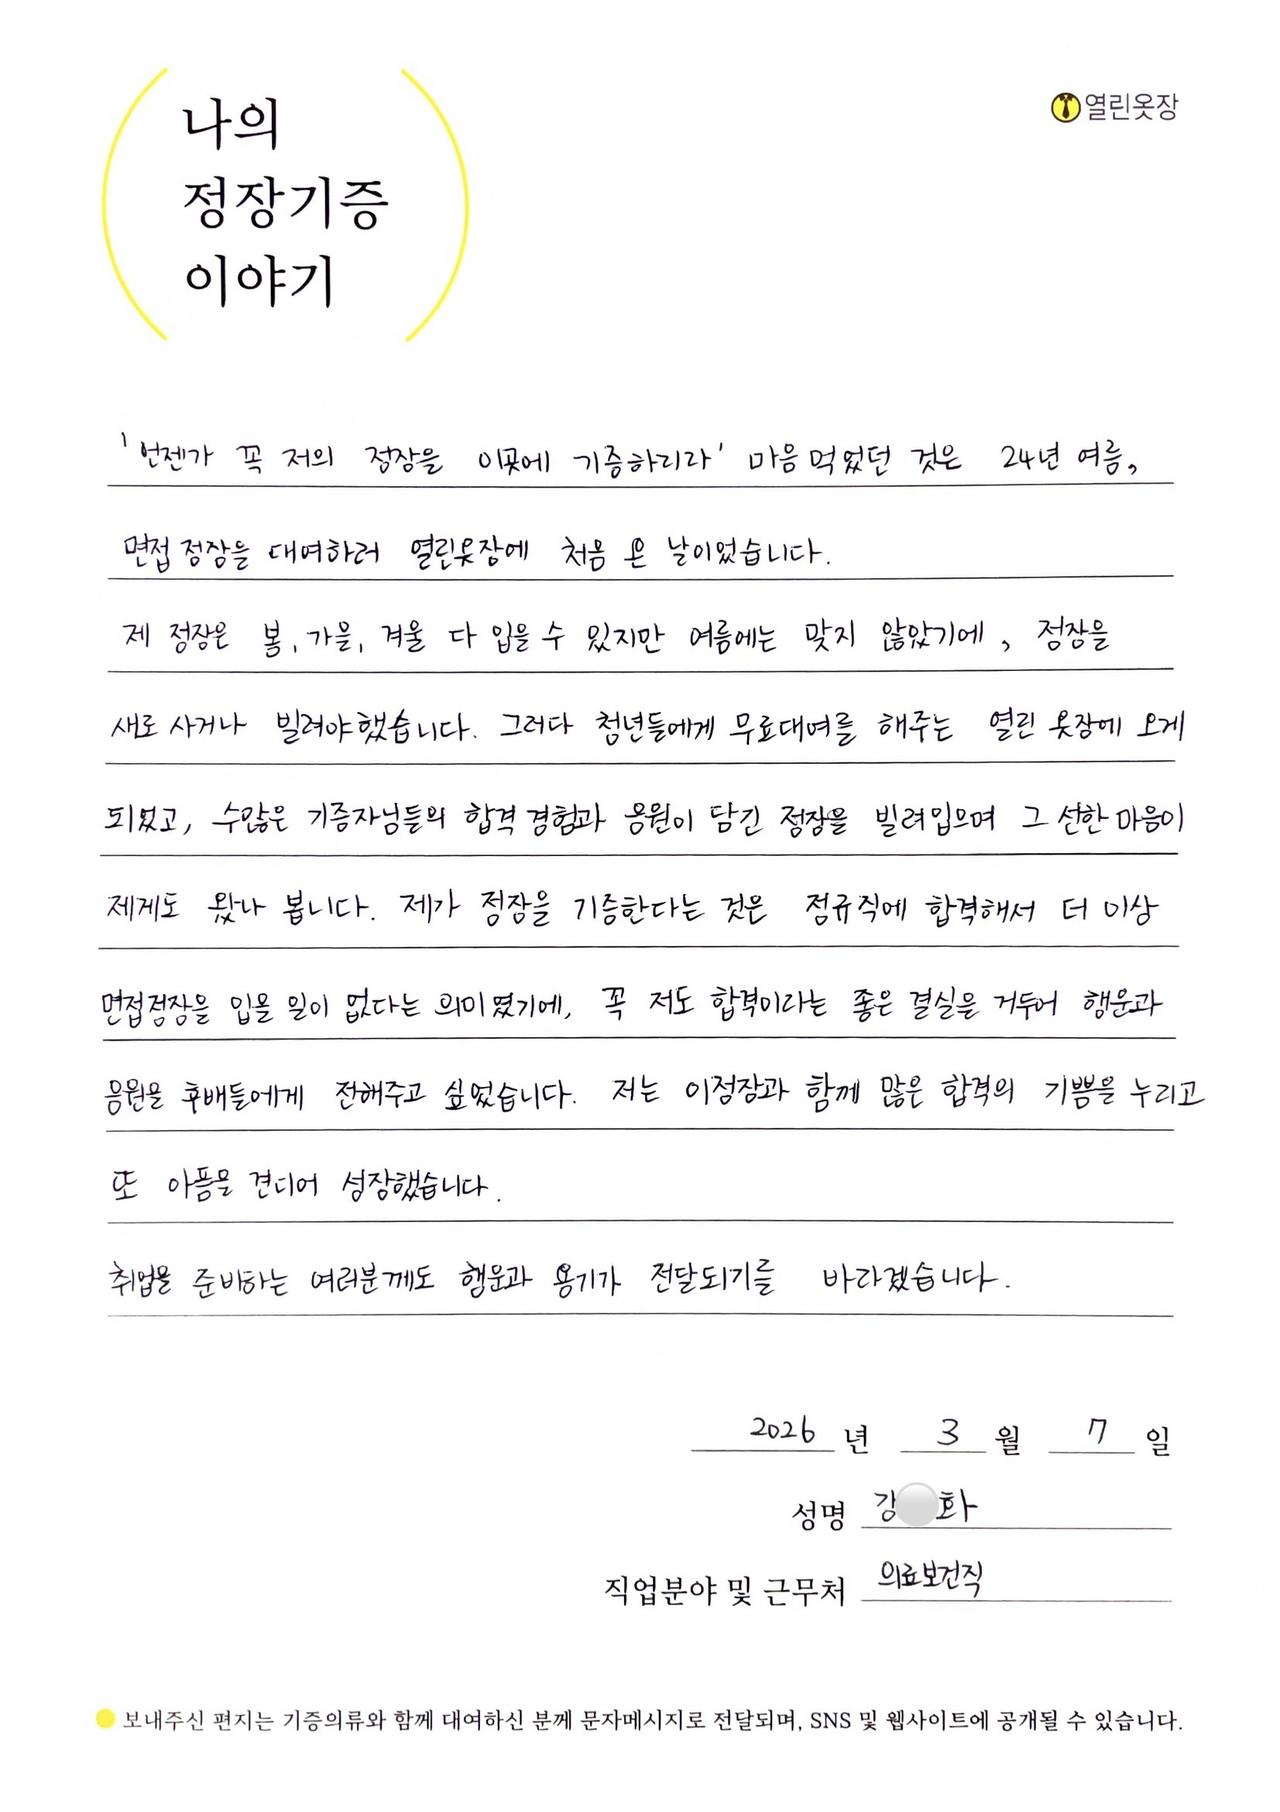 나의
정장기증
이야기
열린옷장
'언젠가 꼭 저의 정장을 이곳에 기증하리라' 마음먹었던 것은 24년 여름,
면접 정장을 대여하러 열린옷장에 처음 온 날이었습니다.
제 정장은 봄, 가을, 겨울 다 입을 수 있지만 여름에는 맞지 않았기에, 정장을
새로 사거나 빌려야했습니다. 그러다 청년들에게 무료대여를 해주는 열린 옷장에 오게
되었고, 수많은 기증자님들의 합격 경험과 응원이 담긴 정장을 빌려입으며 그 선한 마음이
제게도 왔나 봅니다. 제가 정장을 기증한다는 것은 정규직에 합격해서 더 이상
면접정장을 입을 일이 없다는 의미였기에, 꼭 저도 합격이라는 좋은 결실을 거두어 행운과
응원을 후배들에게 전해주고 싶었습니다. 저는 이정장과 함께 많은 합격의 기쁨을 누리고
또 아픔을 견디어 성장했습니다.
취업을 준비하는 여러분께도 행운과 용기가 전달되기를 바라겠습니다.
2026 년 3 월 7 일
성명 강 화
직업분야 및 근무처 의료보건직
보내주신 편지는 기증의류와 함께 대여하신 분께 문자메시지로 전달되며, SNS 및 웹사이트에 공개될 수 있습니다.